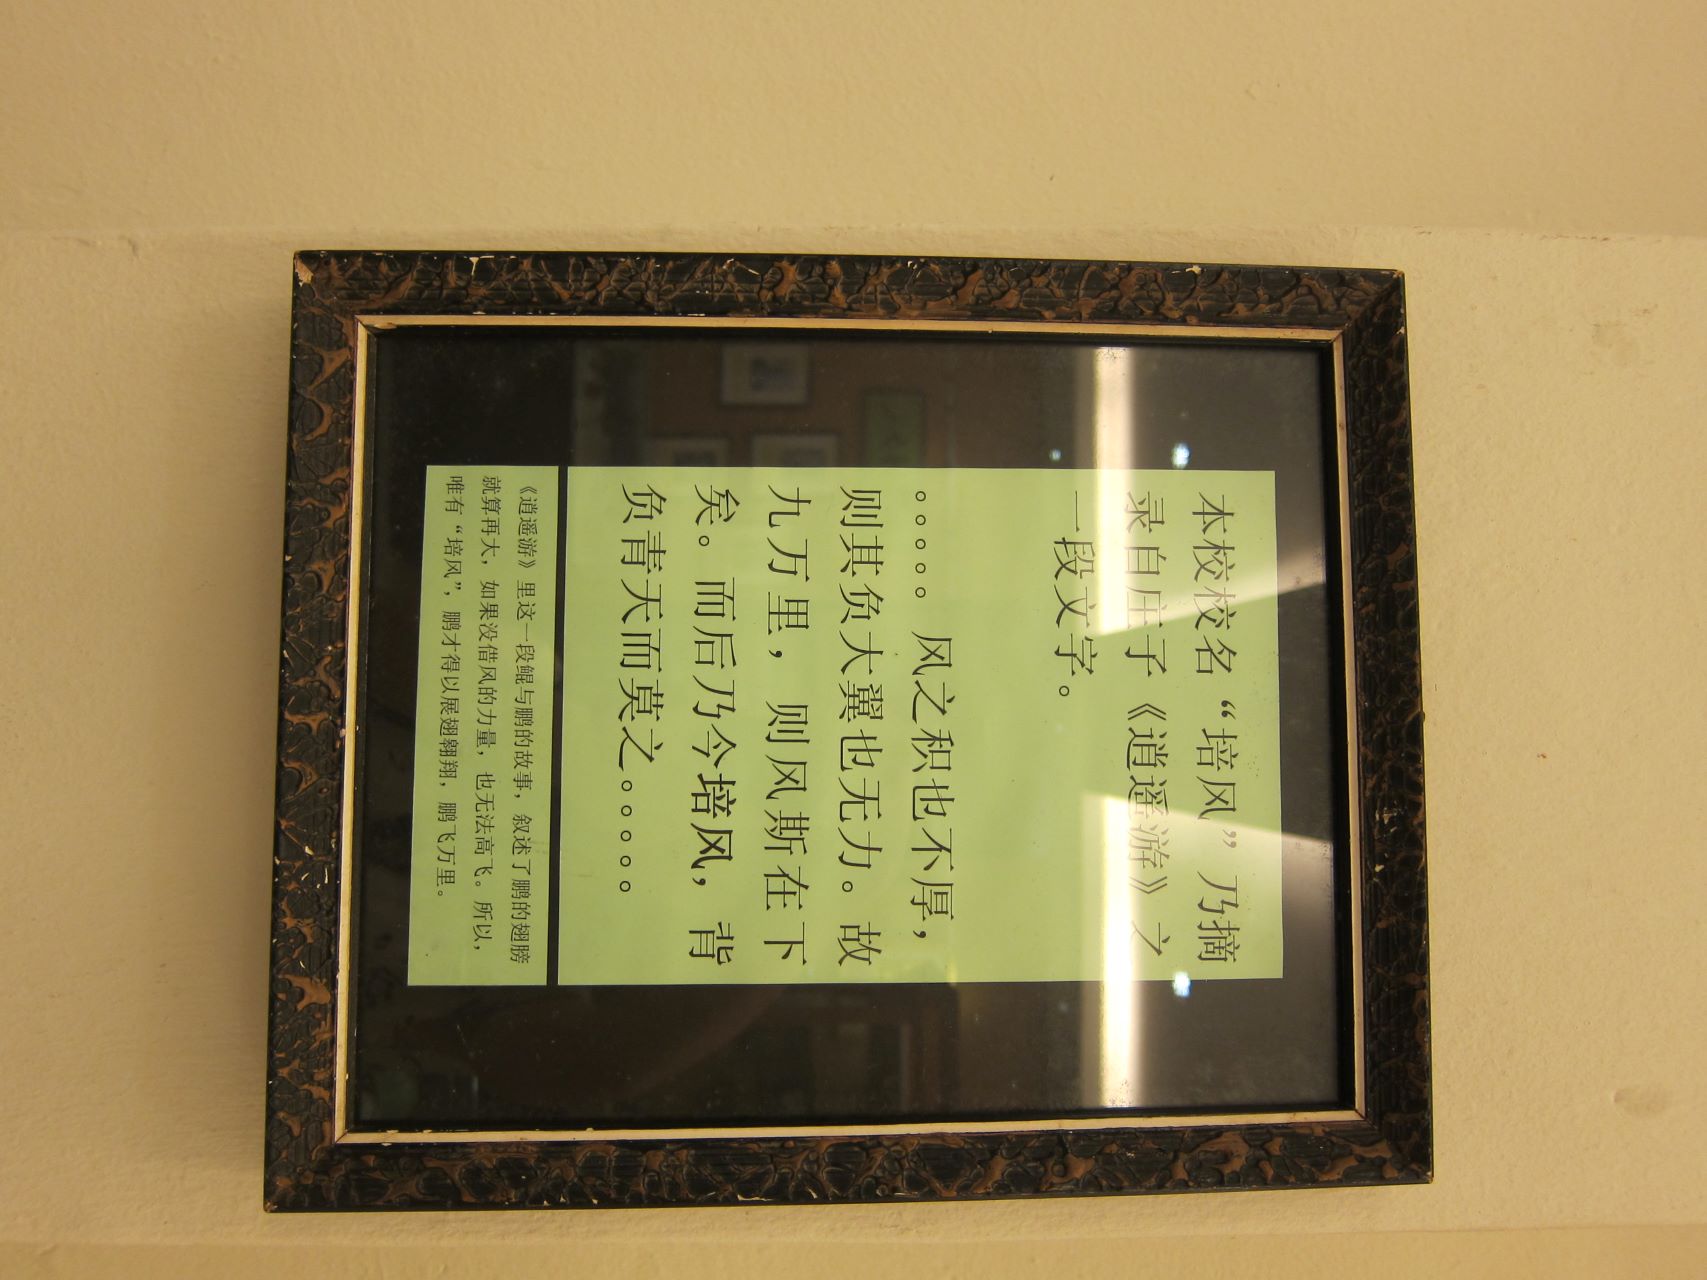 本校校名“培风”乃摘
录自庄子《逍遥游》之
一段文字。
。。。。。风之积也不厚，
则其负大翼也无力。故
九万里，则风斯在下
矣。而后乃今培风，背
负青天而莫之。。。。。
《逍遥游》里这一段鲲与鹏的故事，叙述了鹏的翅膀
就算再大，如果没借风的力量，也无法高飞。所以，
唯有“培风”，鹏才得以展翅翱翔，鹏飞万里。